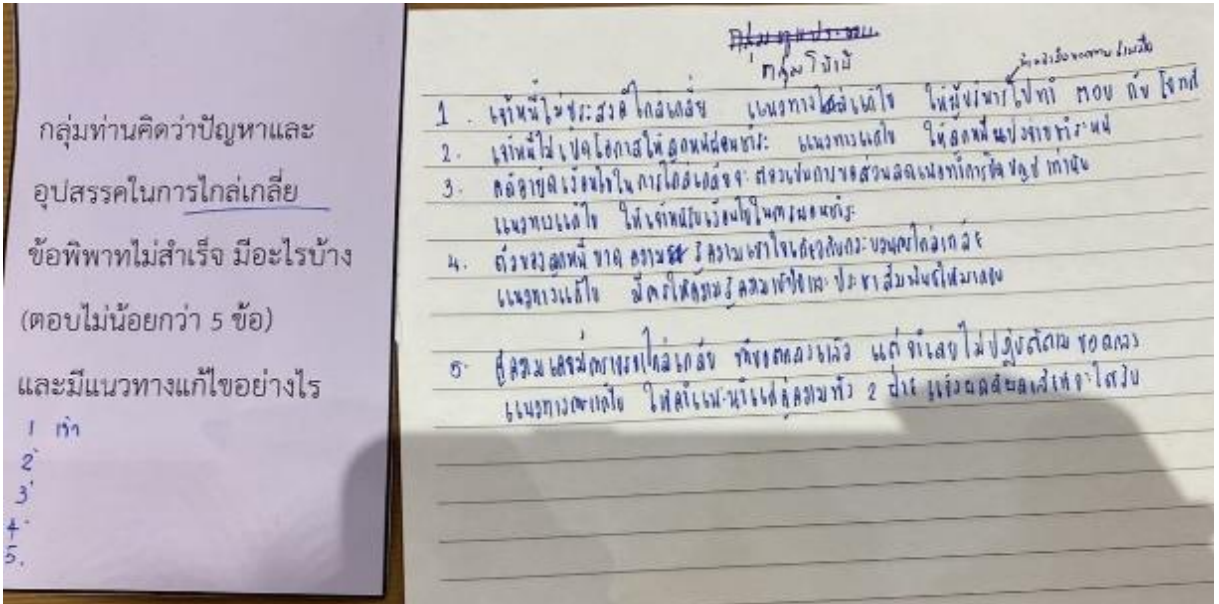 กลุ่มท่านคิดว่าปัญหาและ
อุปสรรคในการไกล่เกลี่ย
ข้อพิพาทไม่สำเร็จ มีอะไรบ้าง
(ตอบไม่น้อยกว่า 5 ข้อ)
และมีแนวทางแก้ไขอย่างไร
1 เจ้า
2
3
4
5.
1. เจ้าหนี้ไม่ประสงค์ไกล่เกลี่ย แนวทางแก้ไข ให้ผู้บริหารไปทำ กับ โจทก์
2. เจ้าหนี้ไม่เปิดโอกาสให้ลูกหนี้ผ่อนชำระ แนวทางแก้ไข ให้ลูกหนี้แบ่งจ่ายชำระหนี้
3. เงื่อนไขในการไกล่เกลี่ยจะต้องเป็นการขอส่วนลดเพื่อทำการปิดบัญชีเท่านั้น
แนวทางแก้ไข ให้เจ้าหนี้รับเงื่อนไขในการผ่อนชำระ
4. ตัวของลูกหนี้ ขาด ความรู้ความเข้าใจเกี่ยวกับกระบวนการไกล่เกลี่ย
แนวทางแก้ไข มีการให้ความรู้ความเข้าใจและประชาสัมพันธ์ให้มากขึ้น
5. คู่ความเคยมีการเจรจาไกล่เกลี่ย ทำข้อตกลงแล้ว แต่จำเลยไม่ปฏิบัติตามข้อตกลง
แนวทางการแก้ไข ให้คำแนะนำแก่คู่ความทั้ง 2 ฝ่าย แจ้งผลดีผลเสียที่จะได้รับ